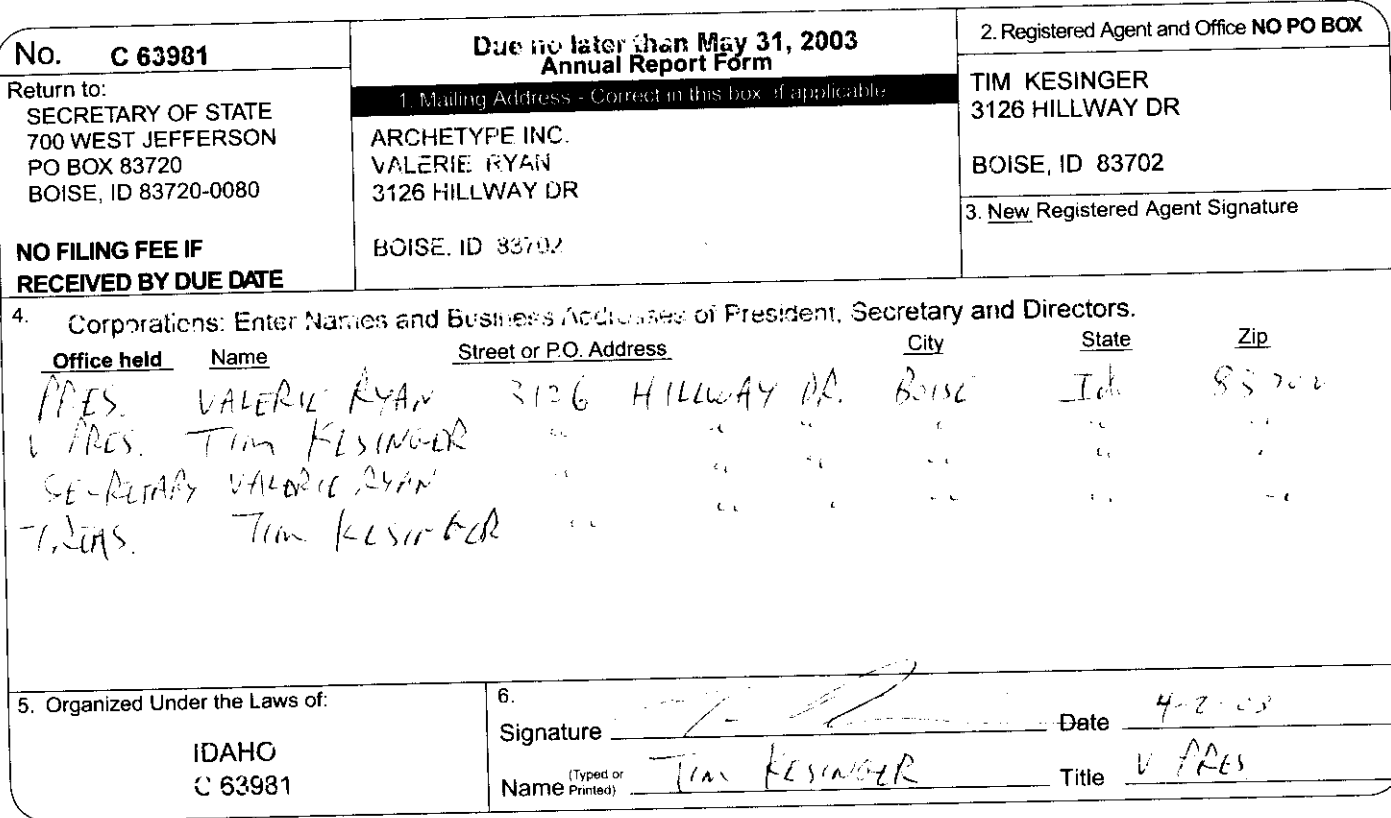 No. C 63981
Return to:
SECRETARY OF STATE
700 WEST JEFFERSON
PO BOX 83720
BOISE, ID 83720-0080
NO FILING FEE IF
RECEIVED BY DUE DATE
Due no later than May 31, 2003
Annual Report Form
1. Mailing Address - Correct in this box if applicable
ARCHETYPE INC.
VALERIE RYAN
3126 HILLWAY DR
BOISE, ID 83702
2. Registered Agent and Office NO PO BOX
TIM KESINGER
3126 HILLWAY DR
BOISE, ID 83702
3. New Registered Agent Signature
4. Corporations: Enter Names and Business Addresses of President, Secretary and Directors.
Office held Name Street or P.O. Address City State Zip
PRES. VALERIE RYAN 3126 HILLWAY DR. BOISE Id 83702
V PRES. TIM KESINGER " " " " " "
SECRETARY VALERIE RYAN " " " " " "
TREAS. TIM KESINGER " " " " " "
5. Organized Under the Laws of:
IDAHO
C 63981
6.
Signature Date 4-2-03
Name (Typed or Printed) TIM KESINGER Title V PRES